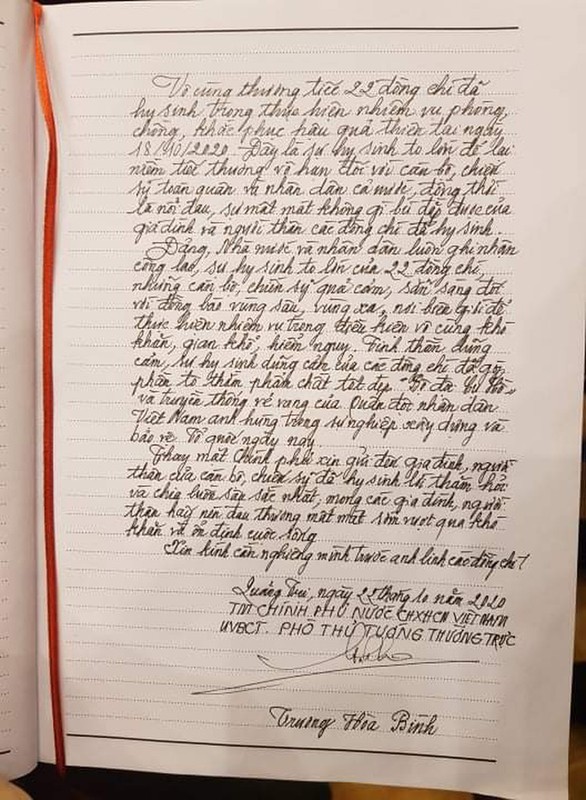 Vô cùng thương tiếc 22 đồng chí đã
hy sinh trong thực hiện nhiệm vụ phòng,
chống, khắc phục hậu quả thiên tai ngày
18/10/2020. Đây là sự hy sinh to lớn để lại
niềm tiếc thương vô hạn đối với cán bộ, chiến
sỹ toàn quân và nhân dân cả nước, đồng thời
là nỗi đau, sự mất mát không gì bù đắp được của
gia đình và người thân các đồng chí đã hy sinh.
Đảng, Nhà nước và nhân dân luôn ghi nhận
công lao, sự hy sinh to lớn của 22 đồng chí,
những cán bộ, chiến sỹ quả cảm, sẵn sàng đối
với đồng bào vùng sâu, vùng xa, nơi biên giới để
thực hiện nhiệm vụ trong điều kiện vô cùng khó
khăn, gian khổ, hiểm nguy. Tinh thần dũng
cảm, sự hy sinh dũng cảm của các đồng chí đã góp
phần tô thắm phẩm chất tốt đẹp "Bộ đội Cụ Hồ"
và truyền thống vẻ vang của Quân đội nhân dân
Việt Nam anh hùng trong sự nghiệp xây dựng và
bảo vệ Tổ quốc ngày nay.
Thay mặt Chính phủ xin gửi đến gia đình, người
thân của cán bộ, chiến sỹ đã hy sinh lời thăm hỏi
và chia buồn sâu sắc nhất, mong các gia đình, người
thân hãy nén đau thương mất mát sớm vượt qua khó
khăn và ổn định cuộc sống
Xin kính cẩn nghiêng mình trước anh linh các đồng chí!
Quảng Trị, ngày 22 tháng 10 năm 2020
TM CHÍNH PHỦ NƯỚC CHXHCN VIỆT NAM
UVBCT. PHÓ THỦ TƯỚNG THƯỜNG TRỰC
Trương Hòa Bình